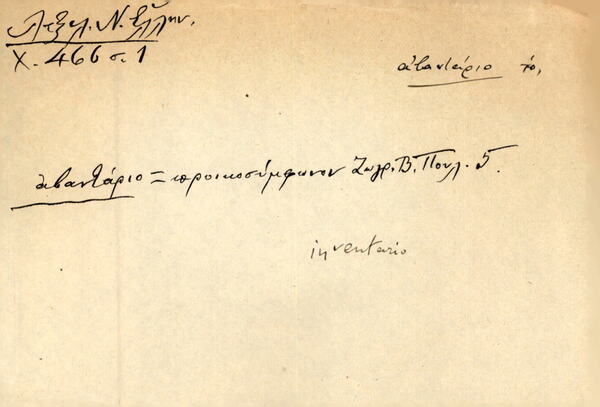 Λεξιλ. Ν. Ἑλλην.
Χ. 466 σ. 1
ἀβαντάριο τό,
ἀβαντάριο = προικοσύμφωνον Ζωγρ. Β. Πουλ. 5.
inventario